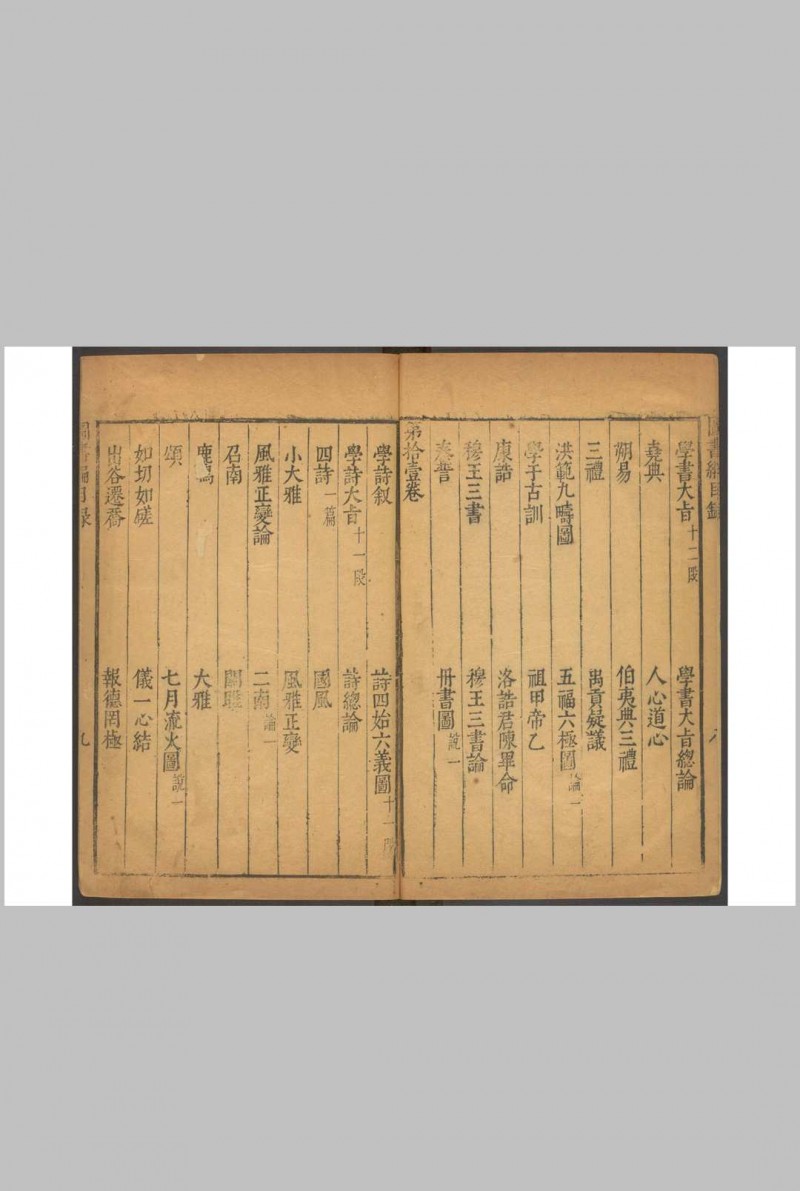 圖書編目錄 八
學書大旨十二段 學書大旨總論
堯典 人心道心
朔易 伯夷典三禮
三禮 禹貢疑議
洪範九疇圖 五福六極圖論一
學于古訓 祖甲帝乙
康誥 洛誥君陳畢命
穆王三書 穆王三書論
秦誓 冊書圖說一
第拾壹卷
學詩叙 詩四始六義圖十一段
學詩大旨十一段 詩總論
四詩一篇 國風
小大雅 風雅正變
風雅正變論 二南論一
召南 關雎
鹿鳴 大雅
頌 七月流火圖說一
如切如磋 儀一心結
出谷遷喬 報德罔極
圖書編目錄 九